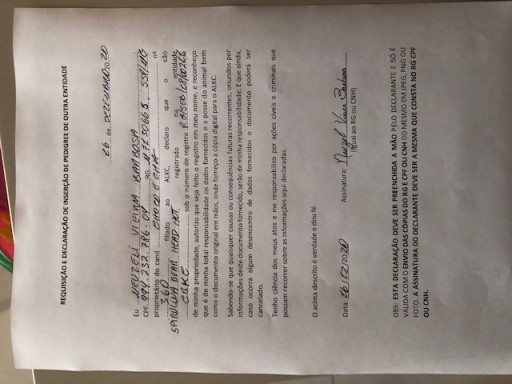 REQUISIÇÃO E DECLARAÇÃO DE INSERÇÃO DE PEDIGREE DE OUTRA ENTIDADE
26 de DEZEMBRO 2020
Eu VIEIRA BARBOSA
CPF RG SSP/MG
proprietário do canil nº
filiado ao ALKC, declaro que o cão
registrado na entidade
sob o número de registro
de minha propriedade, autorizo que seja feito o registro em meu nome, e reconheço
que é de minha total responsabilidade os dados fornecidos e a posse do animal bem
como o documento original em mãos, onde forneço a cópia digital para o ALKC.
Sabendo-se que quaisquer causas ou consequências futuras recorrentes, oriundos por
informações deste documento fornecido, serão de minha responsabilidade. E que ainda,
caso ocorra algum desencontro de dados fornecidos o documento poderá ser
cancelado.
Tenho ciência dos meus atos e me responsabilizo por ações cíveis e criminais que
possam recorrer sobre as informações aqui declaradas.
O acima descrito é verdade e dou fé
Data: 26/12/2020 Assinatura:
(igual ao RG ou CNH)
OBS: ESTA DECLARAÇÃO DEVE SER PREENCHIDA A MÃO PELO DECLARANTE E SÓ É
VÁLIDA COM O ENVIO DAS CÓPIAS DO RG E CPF OU CNH DO MESMO EM JPEG, PNG OU
FOTO. A ASSINATURA DO DECLARANTE DEVE SER A MESMA QUE CONSTA NO RG CPF
OU CNH.